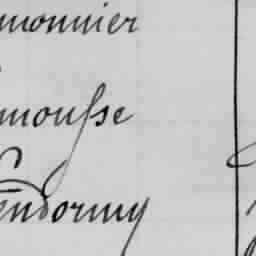 monnier
mousse
endormy